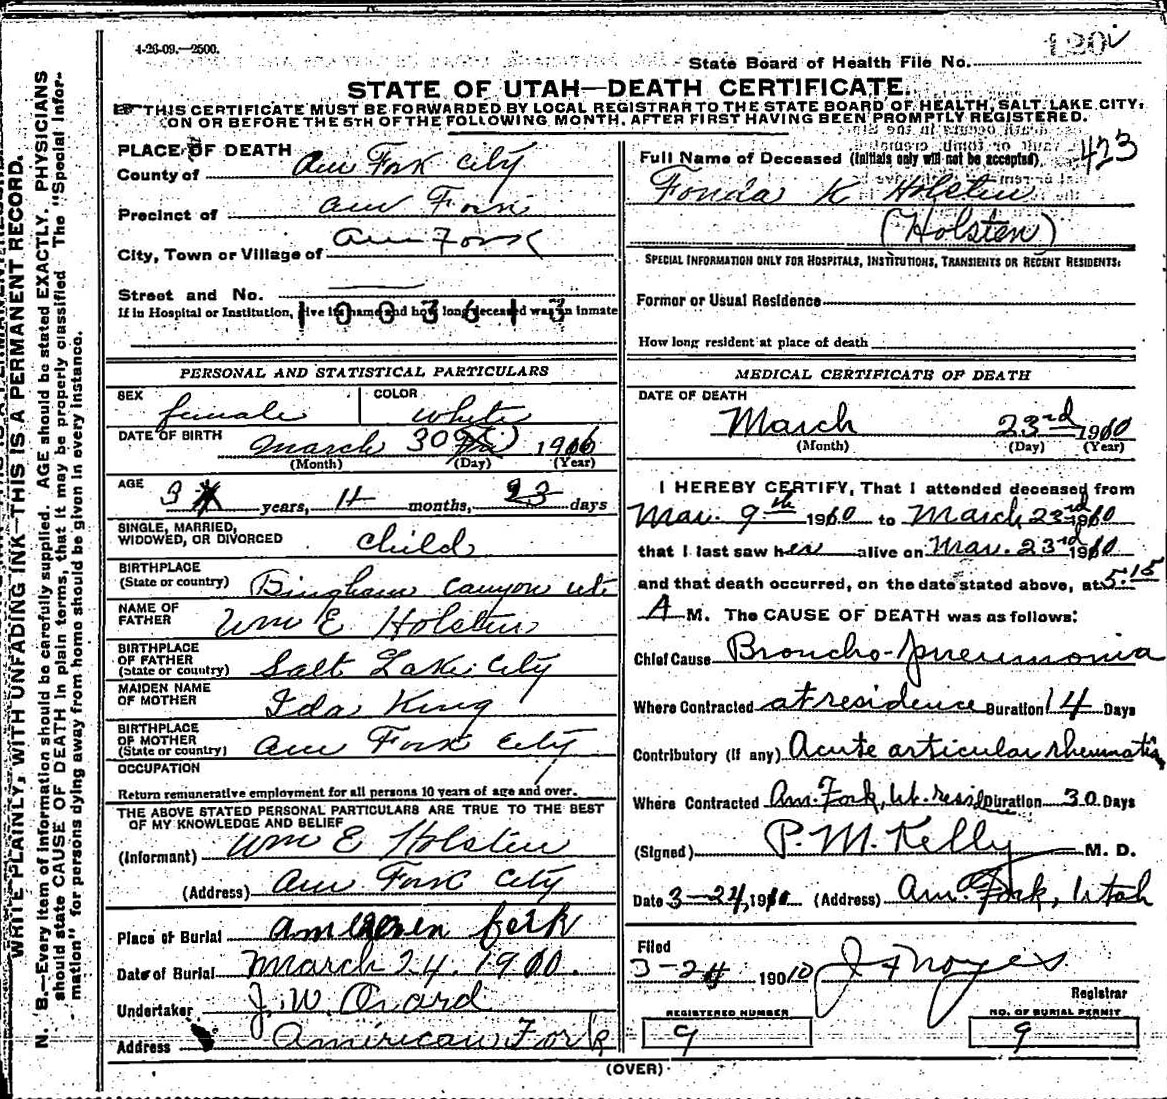 4-26-09.—2500.
120
State Board of Health File No.
STATE OF UTAH—DEATH CERTIFICATE.
THIS CERTIFICATE MUST BE FORWARDED BY LOCAL REGISTRAR TO THE STATE BOARD OF HEALTH, SALT LAKE CITY,
ON OR BEFORE THE 5TH OF THE FOLLOWING MONTH, AFTER FIRST HAVING BEEN PROMPTLY REGISTERED.
PLACE OF DEATH
County of Am Fork City
Precinct of Am Fork
City, Town or Village of Am Fork
Street and No.
If in Hospital or Institution, give its name and how long deceased was an inmate
1003613
PERSONAL AND STATISTICAL PARTICULARS
SEX female COLOR white
DATE OF BIRTH March 30 1906
(Month) (Day) (Year)
AGE 3 years, 11 months, 23 days
SINGLE, MARRIED,
WIDOWED, OR DIVORCED child
BIRTHPLACE
(State or country) Bingham Canyon ut.
NAME OF
FATHER Wm E Holsten
BIRTHPLACE
OF FATHER
(State or country) Salt Lake City
MAIDEN NAME
OF MOTHER Ida King
BIRTHPLACE
OF MOTHER
(State or country) Am Fork City
OCCUPATION
Return remunerative employment for all persons 10 years of age and over.
THE ABOVE STATED PERSONAL PARTICULARS ARE TRUE TO THE BEST
OF MY KNOWLEDGE AND BELIEF
(Informant) Wm E Holsten
(Address) Am Fork City
Place of Burial American fork
Date of Burial March 24. 1910.
Undertaker J. W.
Address American Fork
Full Name of Deceased (Initials only will not be accepted). 423
Fonda K Holsten
(Holsten)
SPECIAL INFORMATION ONLY FOR HOSPITALS, INSTITUTIONS, TRANSIENTS OR RECENT RESIDENTS:
Former or Usual Residence
How long resident at place of death
MEDICAL CERTIFICATE OF DEATH
DATE OF DEATH
March 23rd 1910
(Month) (Day) (Year)
I HEREBY CERTIFY, That I attended deceased from
Mar. 9th 1910 to March 23rd 1910
that I last saw her alive on Mar. 23rd 1910
and that death occurred, on the date stated above, at 5:15
A M. The CAUSE OF DEATH was as follows:
Chief Cause Broncho-pneumonia
Where Contracted at residence Duration 14 Days
Contributory (if any) Acute articular rheumatism
Where Contracted Am. Fork, Ut. resid. Duration 30 Days
(Signed) P. M. Kelly M. D.
Date 3-24, 1910 (Address) Am. Fork, Utah
Filed
3-24 1910 J F Noyes
Registrar
REGISTERED NUMBER
9
NO. OF BURIAL PERMIT
9
(OVER)
WRITE PLAINLY, WITH UNFADING INK—THIS IS A PERMANENT RECORD.
N. B.—Every item of information should be carefully supplied. AGE should be stated EXACTLY. PHYSICIANS
should state CAUSE OF DEATH in plain terms, that it may be properly classified. The "Special Infor-
mation" for persons dying away from home should be given in every instance.